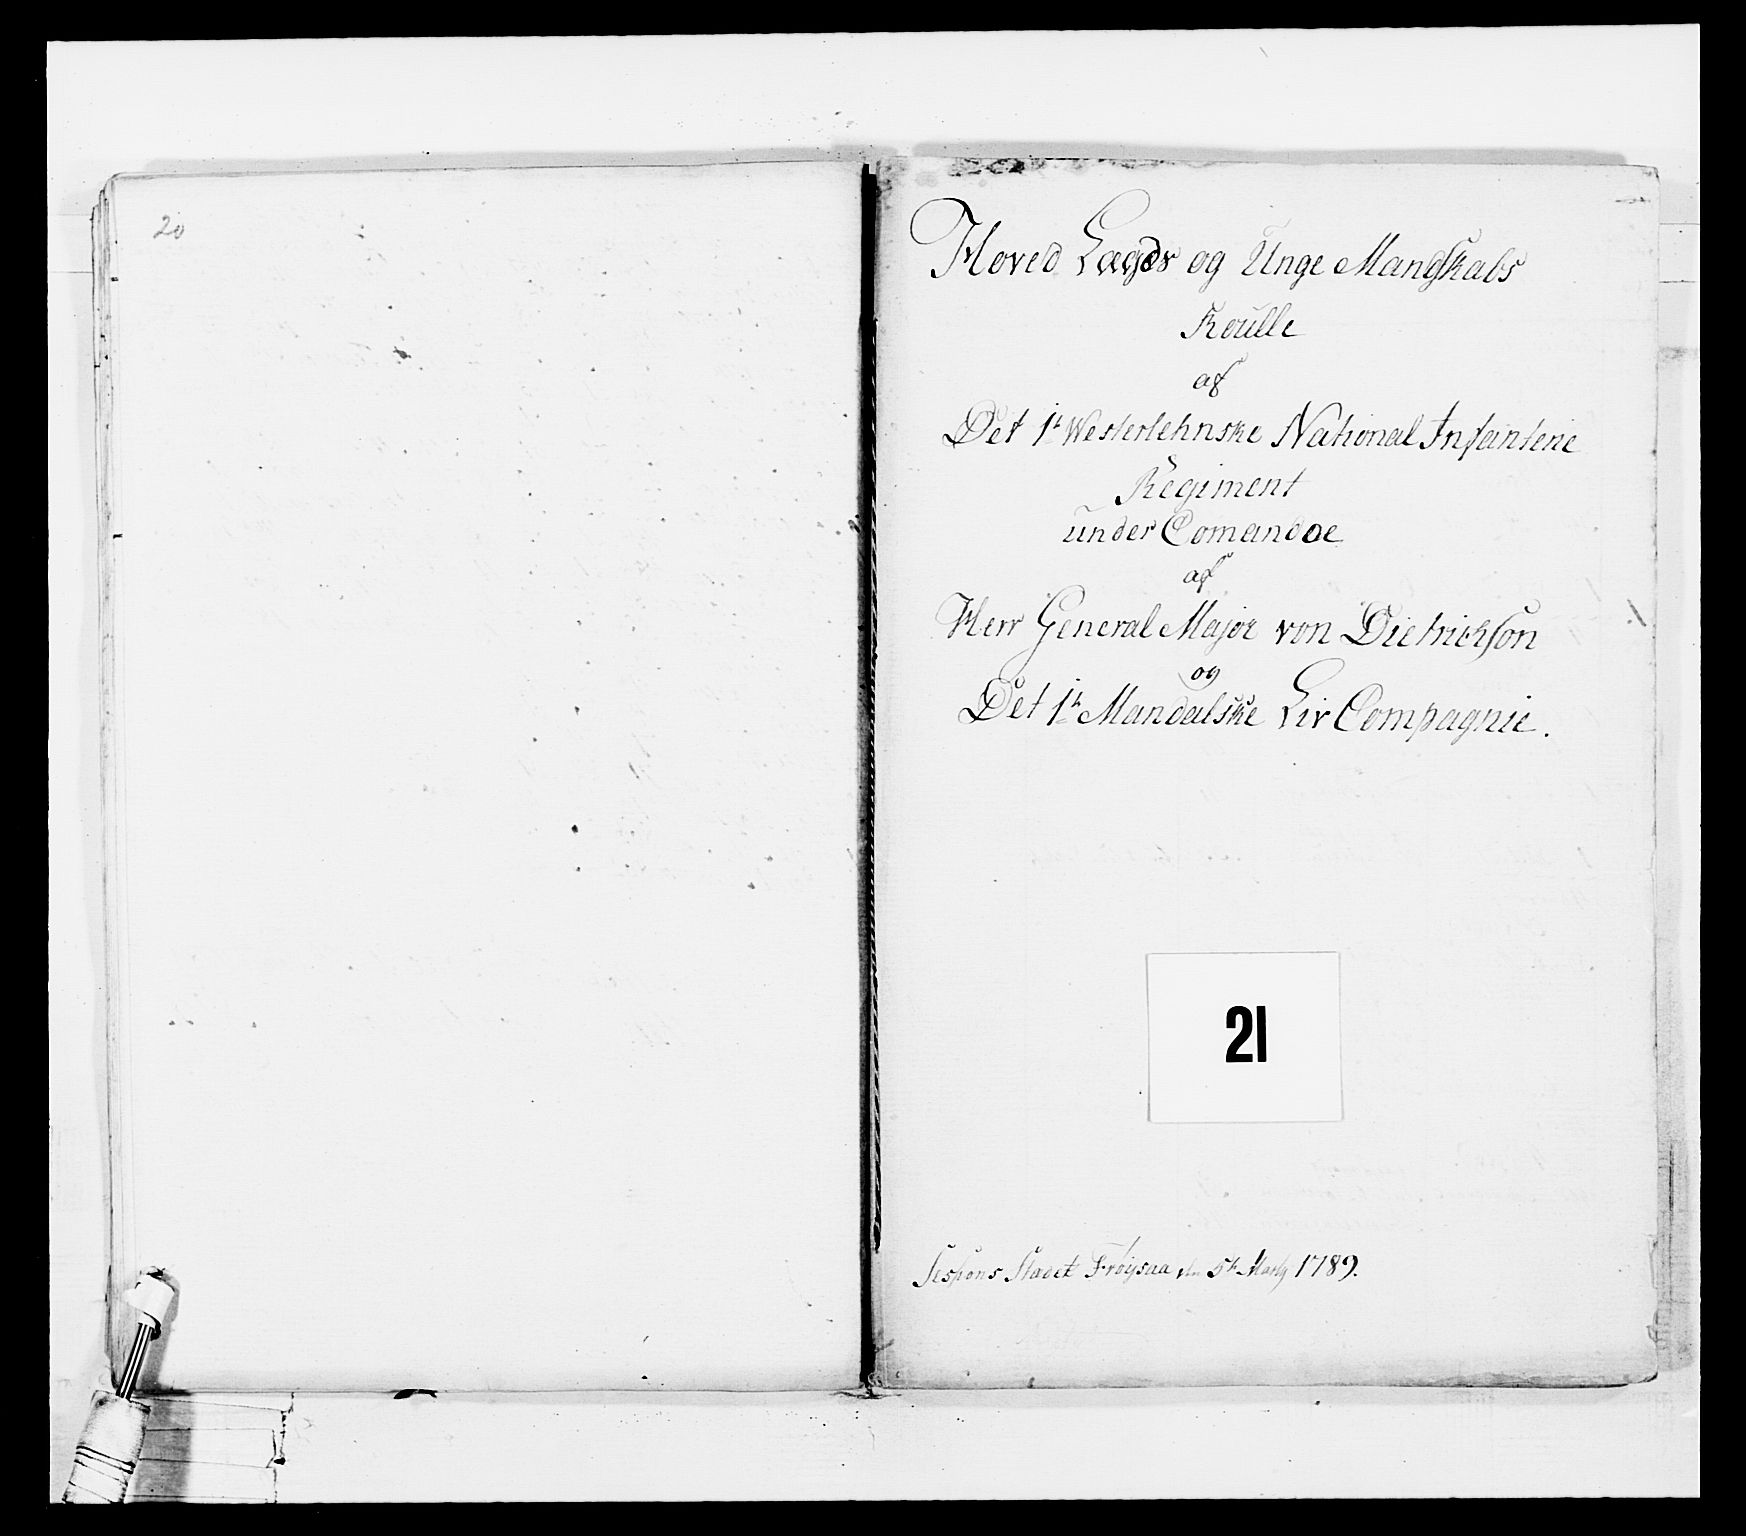 20
Hoved Lægds og Unge Mandskabs
Roulle
af
Det 1te Westerlehnske National Infanterie
Regiment
under Comandoe
af
Herr General Major von Dietrichson
og
Det 1te Mandalske Liv Compagnie.
21
Sesions Stædet Frøysaa den 5te Marty 1789.